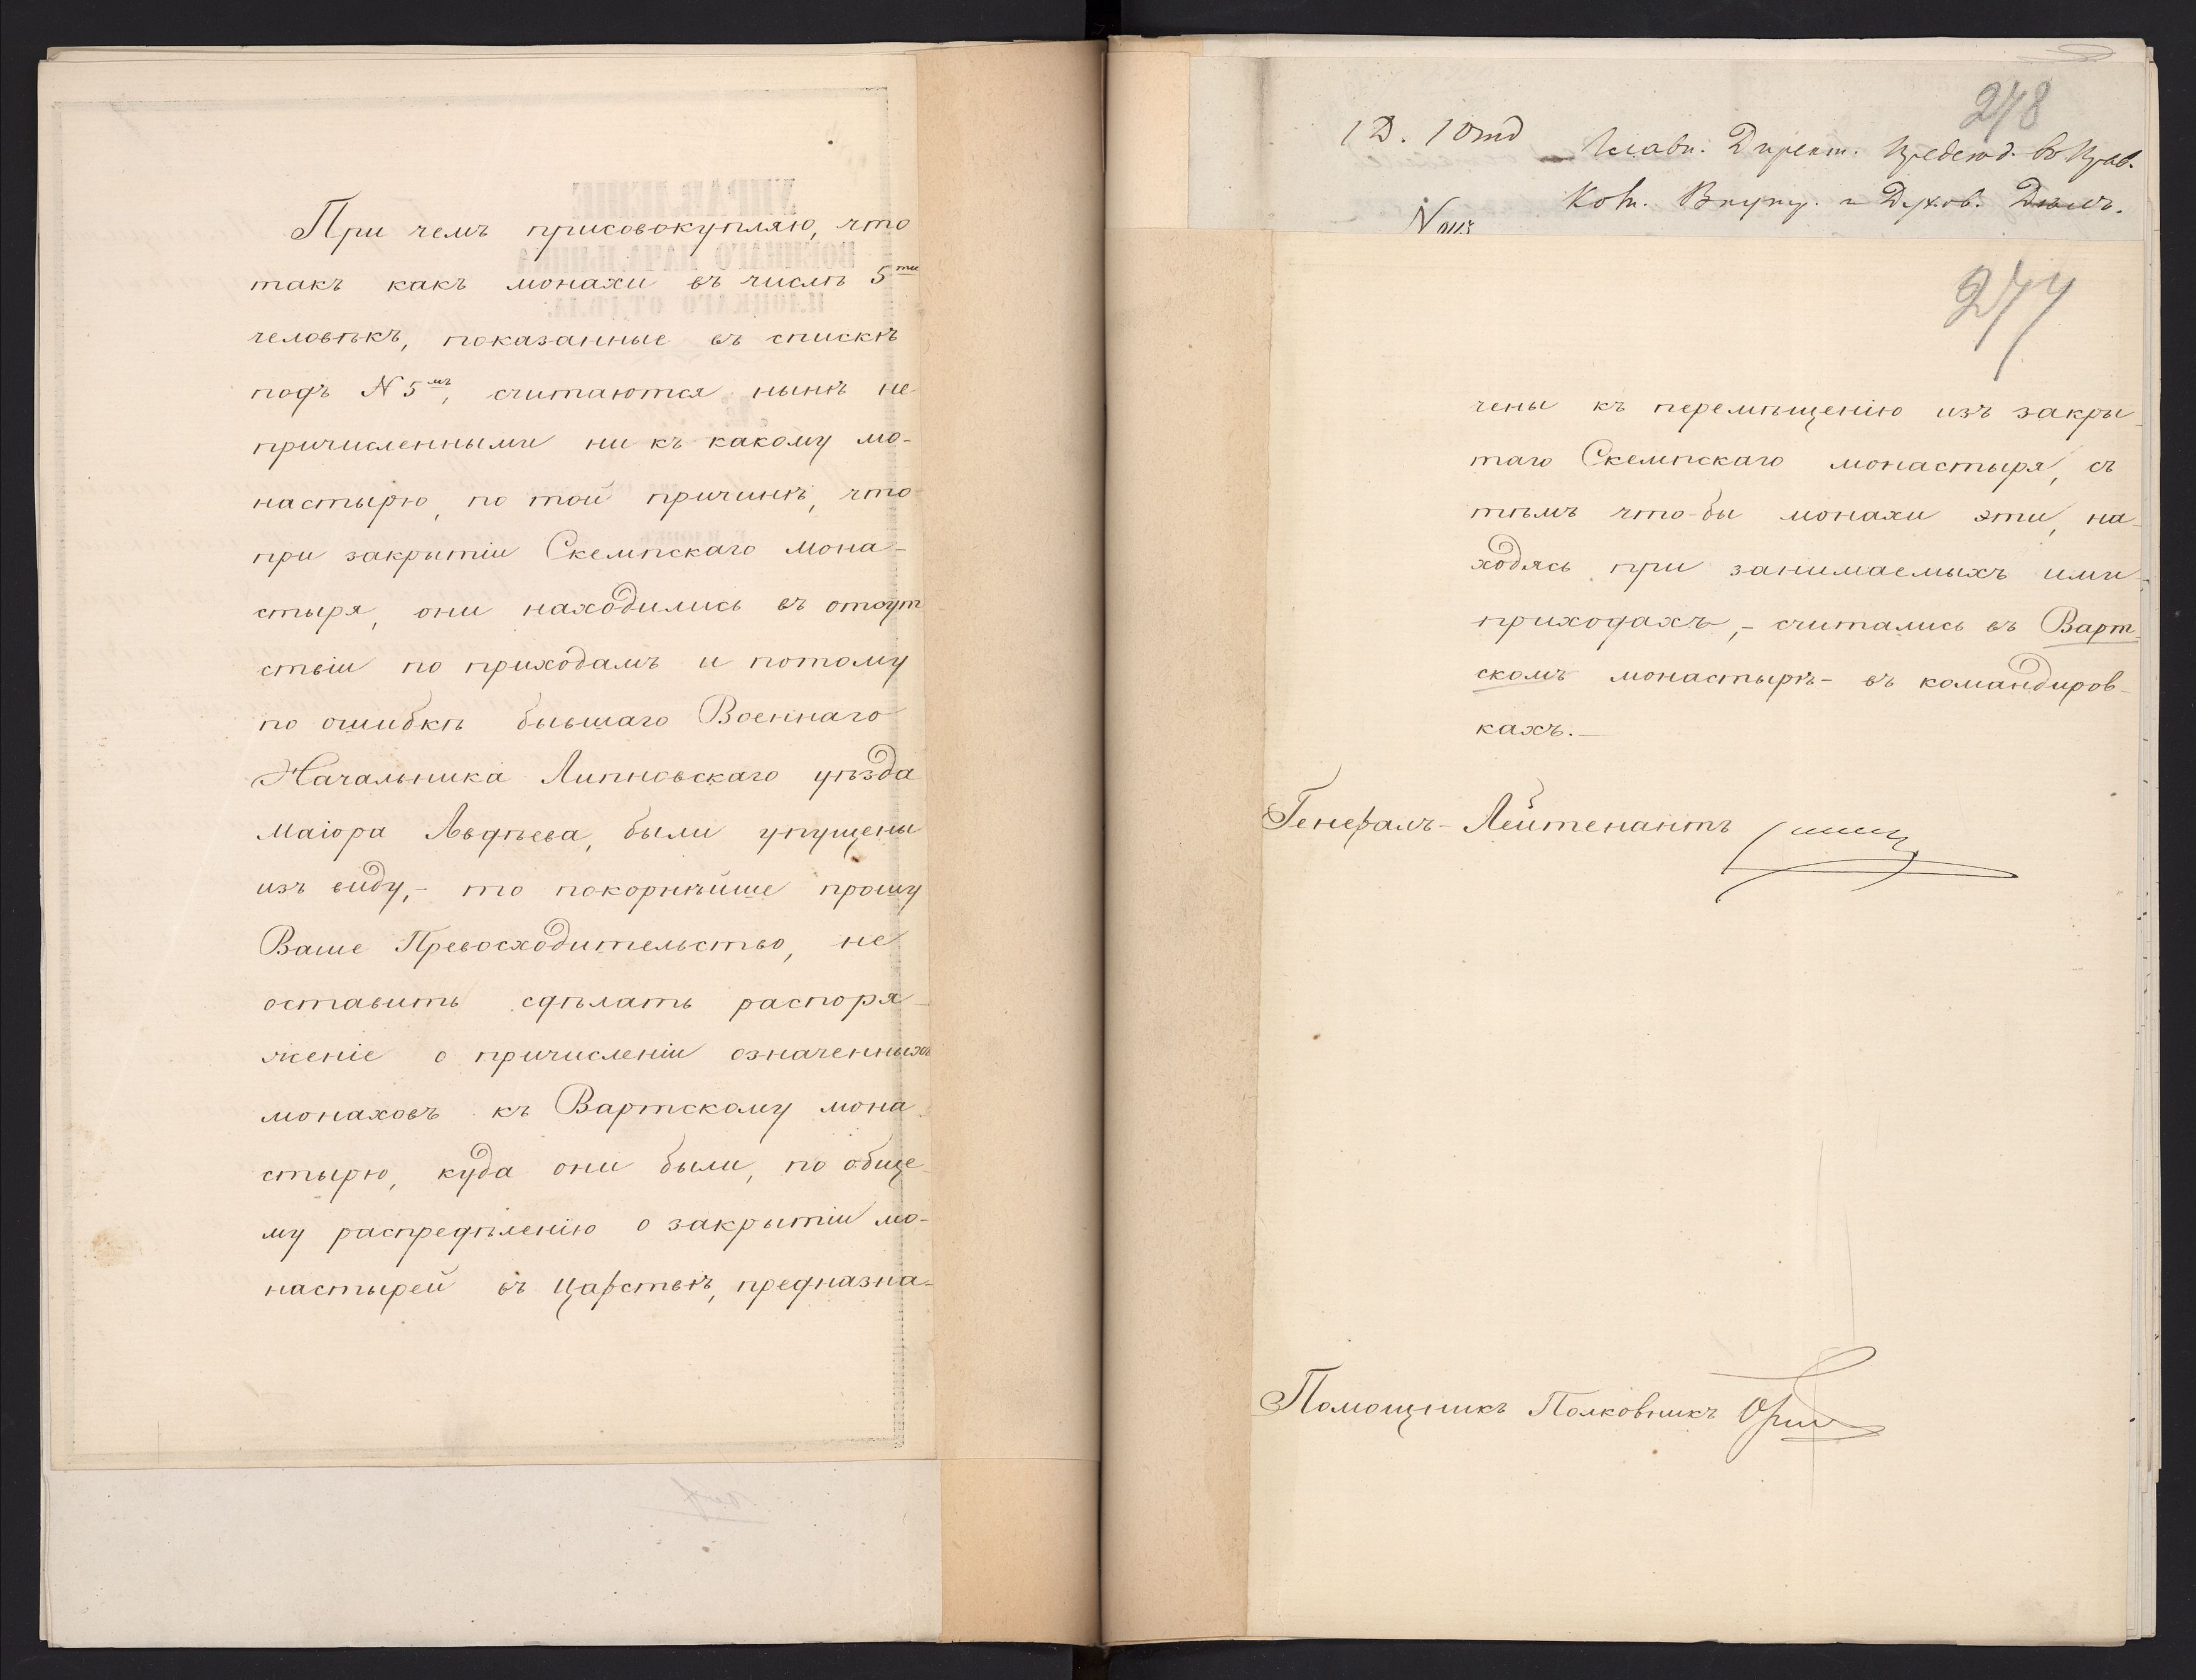 При чемъ присовокупляю, что
такъ какъ монахи въ числѣ 5ти
человѣкъ, показанные въ спискѣ
подъ N 5мъ, считаются нынѣ не
причисленными ни къ какому мо-
настырю, по той причинѣ, что
при закрытіи Скемпскаго мона-
стыря, они находились въ отсут
ствіи по приходамъ и потому
по ошибкѣ бывшаго Военнаго
Начальника Липновскаго уѣзда
Маіора Авдѣева, были упущены
изъ виду,- то покорнѣйше прошу
Ваше Превосходительство, не
оставить сдѣлать распоря-
женіе о причисленіи означенныхъ
монаховъ къ Вартскому мона-
стырю, куда они были, по обще-
му распредѣленію о закрытіи мо-
настырей въ Царствѣ, предназна-
278
1 Д. 1 Отд
Главн. Директ. Предсѣд. въ Прав.
Ком. Внутр. и Духов. Дѣлъ.
277
чены къ перемѣщенію изъ закры-
таго Скемпскаго монастыря, съ
тѣмъ что-бы монахи эти, на-
ходясь при занимаемыхъ ими
приходахъ,- считались въ Варт-
скомъ монастырѣ- въ командиров-
кахъ.-
Генералъ-Лейтенантъ
Помощникъ Полковникъ
УПРАВЛЕНІЕ
ВОЕННАГО НАЧАЛЬНИКА
ПЛОЦКАГО ОТДѢЛА.